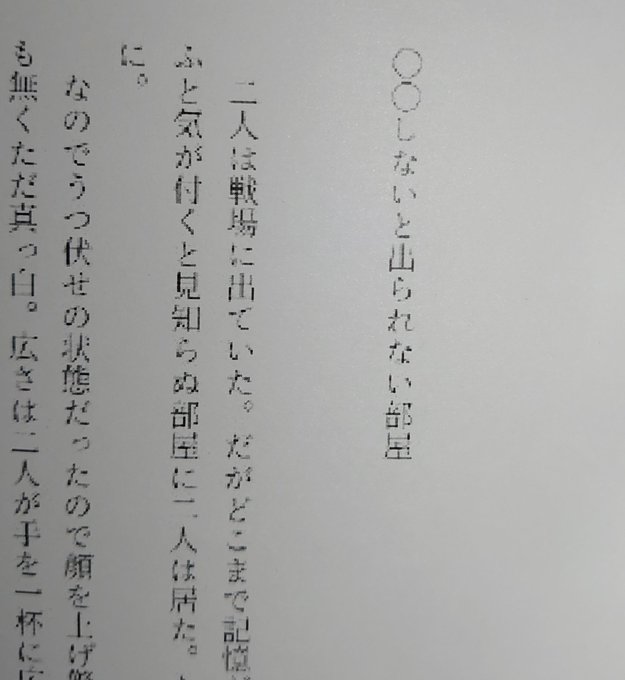 〇〇しないと出られない部屋
二人は戦場に出ていた。だがどこまで記憶
ふと気が付くと見知らぬ部屋に二人は居た。
に。
なのでうつ伏せの状態だったので顔を上げ
も無くただ真っ白。広さは二人が手を一杯に